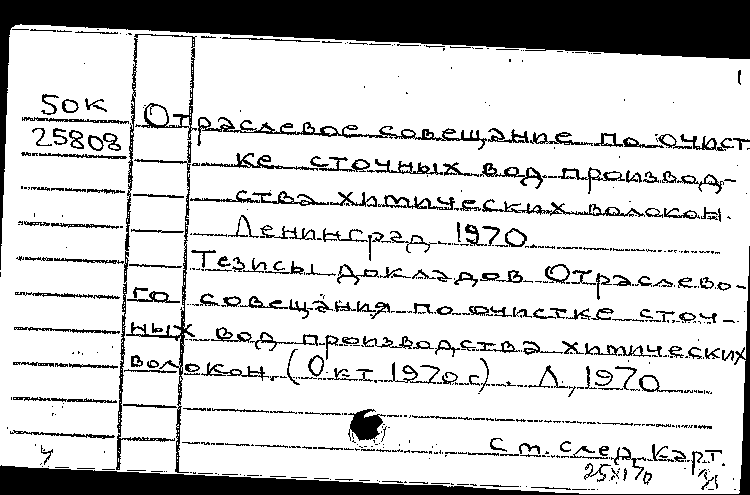 1
50К
25808
Отраслевое совещание по очист
ке сточных вод производ-
ства химических волокон.
Ленинград. 1970.
Тезисы докладов Отраслево-
го совещания по очистке сточ-
ных вод производства химических
волокон. (Окт 1970г). Л, 1970
См. след. карт.
25XI70